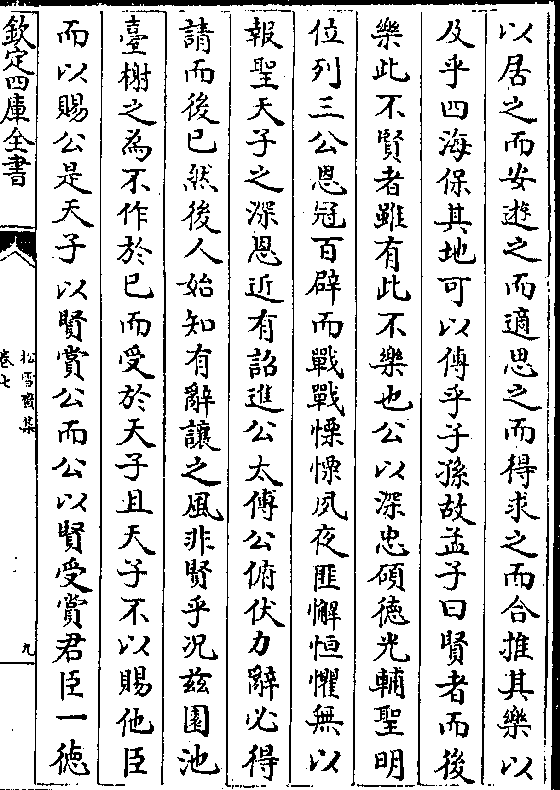 以居之而安遊之而適思之而得求之而合推其樂以
及乎四海保其地可以傳乎子孫故孟子曰賢者而後
樂此不賢者雖有此不樂也公以深忠碩徳光輔聖明
位列三公恩冠百辟而戰戰慄慄夙夜匪懈恒懼無以
報聖天子之深恩近有詔進公太傅公俯伏力辭必得
請而後已然後人始知有辭讓之風非賢乎況兹園池
臺榭之為不作於已而受於天子且天子不以賜他臣
而以賜公是天子以賢賞公而公以賢受賞君臣一徳
欽定四庫全書
松雪齋集
卷七
九